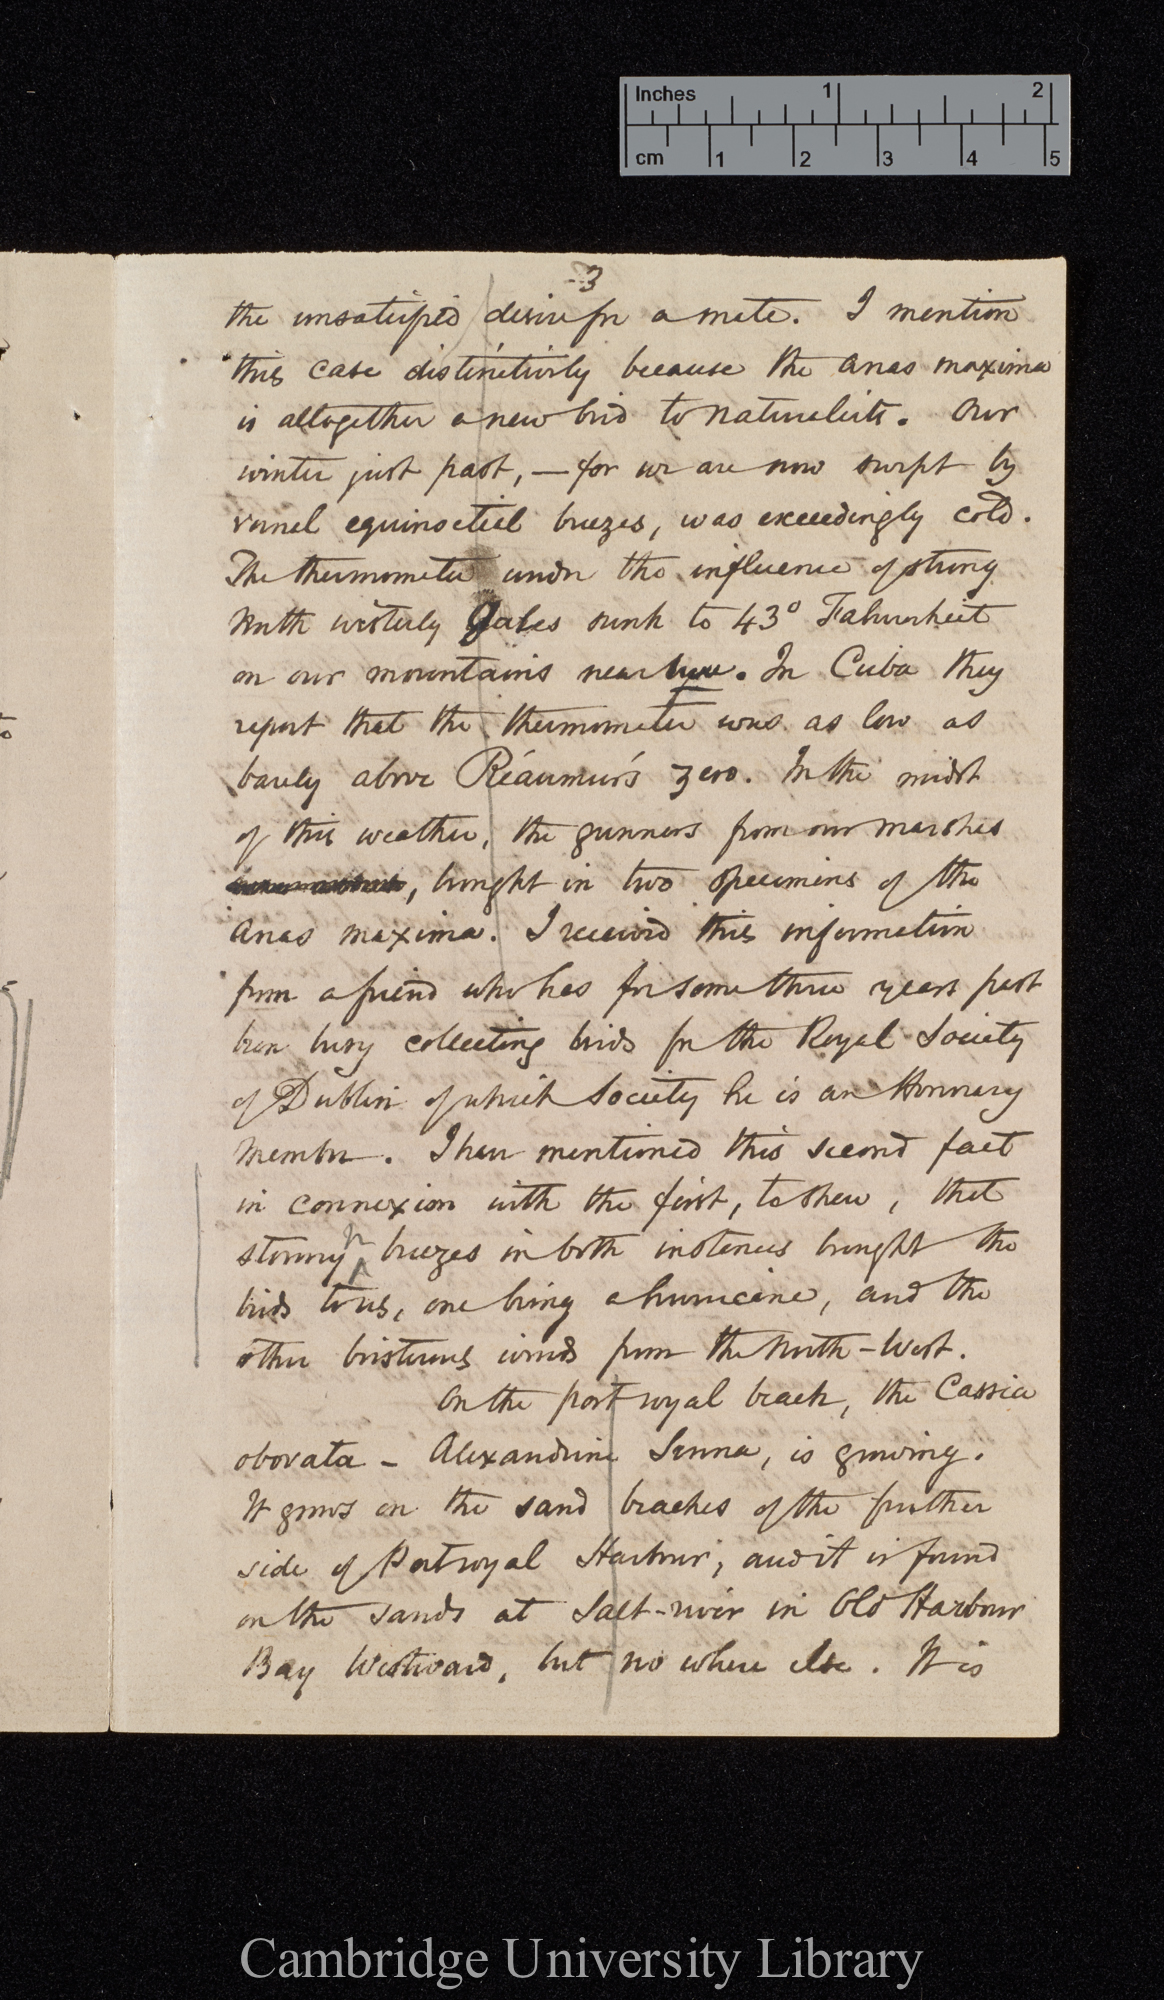 Inches 1 2
cm 1 2 3 4 5
3
the unsatisfied desire for a mate. I mention
this case distinctively because the Anas maxima
is altogether a new bird to naturalists. Our
winter just past, — for we are now swept by
vernal equinoctial breezes, was exceedingly cold.
The thermometer under the influence of strong
North westerly Gales sunk to 43° Fahrenheit
on our mountains near here. In Cuba they
report that the thermometer was as low as
barely above Réaumur's zero. In the midst
of this weather, the gunners from our marshes
, brought in two specimens of the
Anas maxima. I received this information
from a friend who has for some three years past
been busy collecting birds for the Royal Society
of Dublin of which Society he is an Honorary
Member. I have mentioned this second fact
in connexion with the first, to shew, that
stormy breezes in both instances brought the
birds to us, one being a hurricane, and the
other boisterous winds from the North-West.
On the port royal beach, the Cassia
obovata – Alexandrine Senna, is growing.
It grows on the sand beaches of the further
side of Portroyal Harbour; and it is found
on the sands at Salt-river in Old Harbour
Bay Westward, but no where else. It is
Cambridge University Library